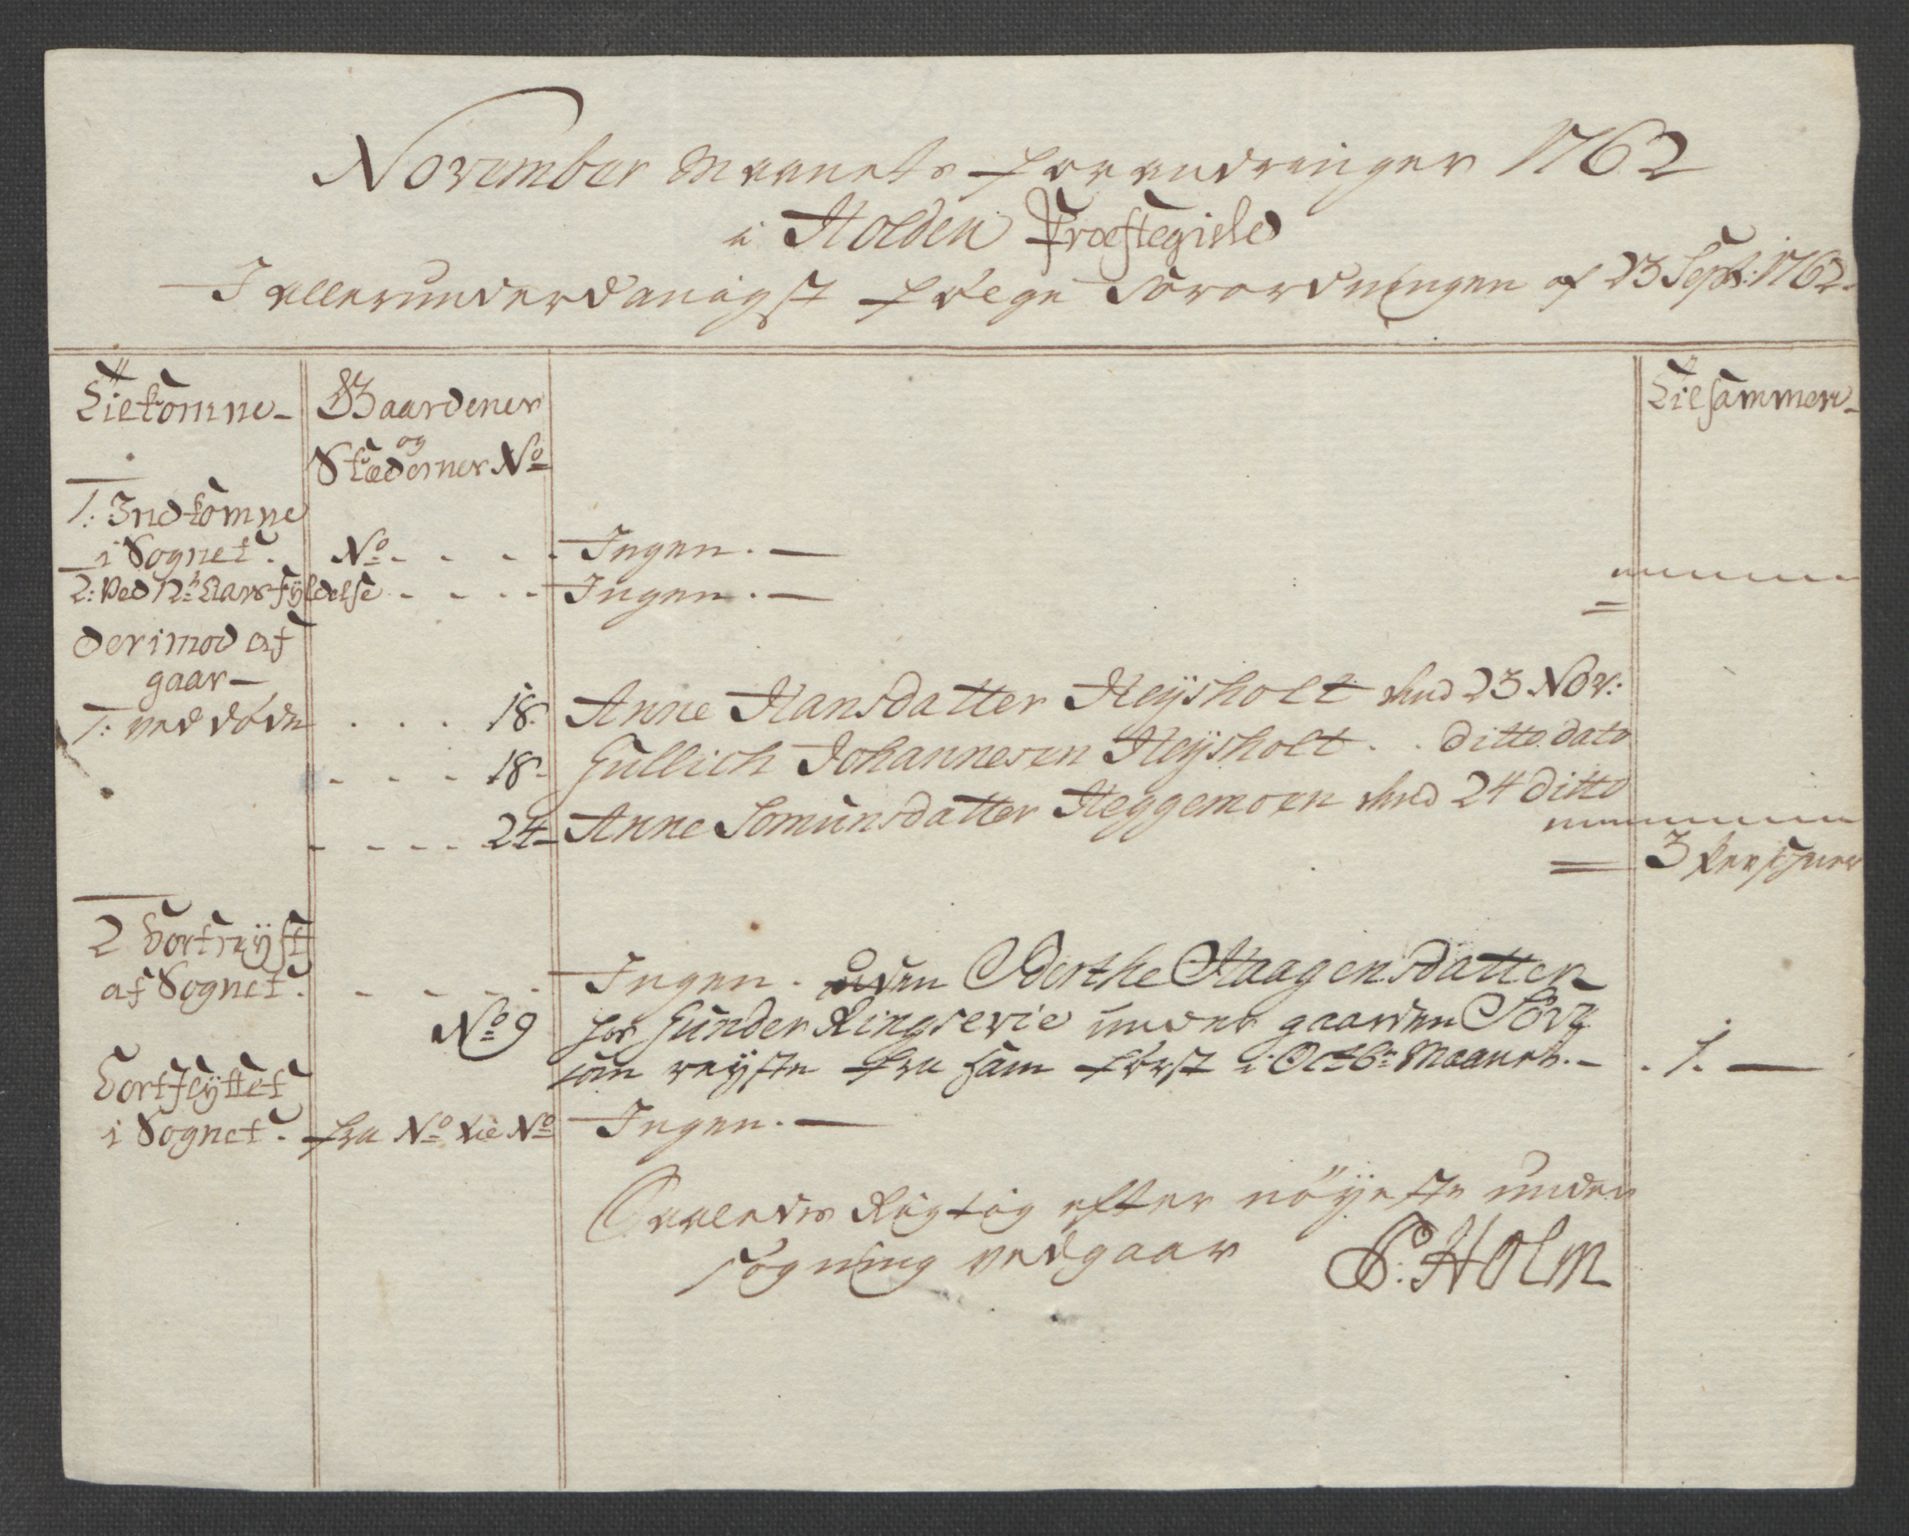 November Maanets forandringer 1762
i Holden Præstegield
I allerunderdanigst følge Forordningen af 23 Sept: 1762.
Tilkomne
Gaardenes
og
Stædernes No
Tilsammen
1: Indkomne
i Sognet. No Ingen.
2: Ved 12te Aars fyldelse Ingen.
derimod af
gaar
1: ved døde 18. Anne Hansdatter Heÿsholt d 23 Nov:
18. Gullich Johannesen Heÿsholt. ditto dato
24 Anne Somunsdatter Heggemoen d 24 ditto
3 Persohner
2 bortreÿst
af Sognet. Ingen. uden Berthe Haagensdatter
No 9 hos Gunder Ringsevie under gaarden
som reyste fra ham først i Octbr: Maanet. 1.
bortflÿttet
i Sognet. fra No til No Ingen.
Saaledes Rigtig efter nöÿeste under
søgning vedgaar P: Holm